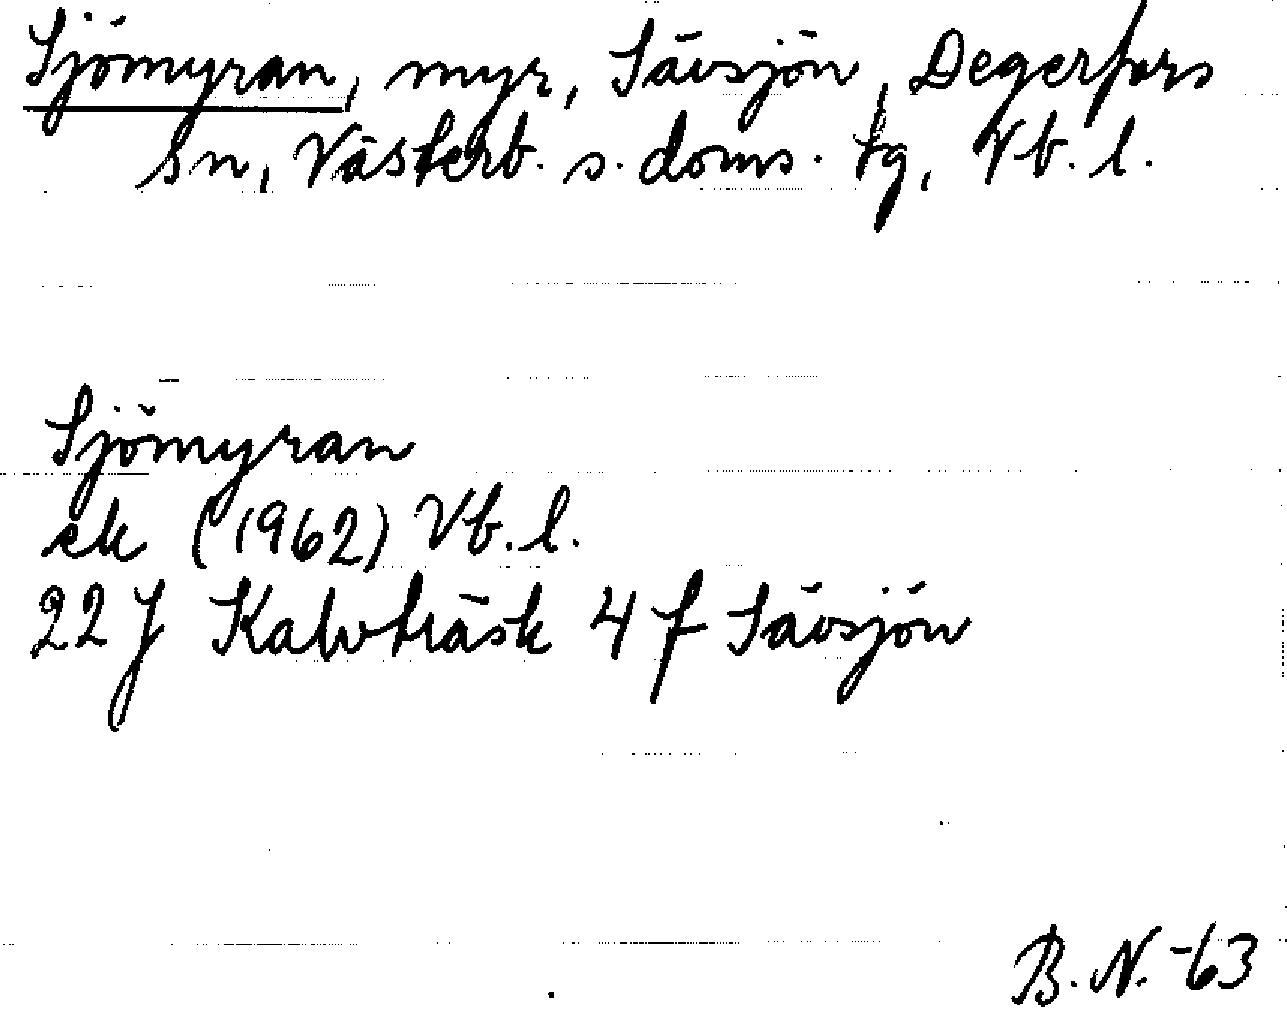 Sjömyran, myr, Sävsjön, Degerfors
sn, Västerb. s. doms. tg, Vb. l.
Sjömyran
ek (1962) Vb. l.
22 J Kalvträsk 4 f Sävsjön
B. N. -63